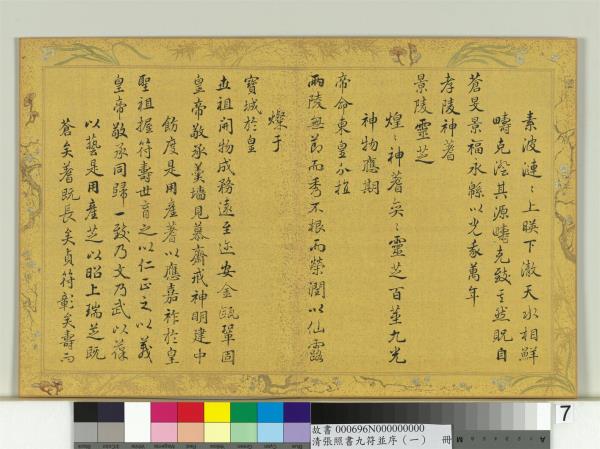 素波漣〻上暎下澈天水相鮮
疇克澄其源疇克致其然貺自
蒼旻景福永緜以光萬年
孝陵神蓍
景陵靈芝
煌〻神蓍奕〻靈芝百莖九光
神物應期
帝命東皇分植
兩陵無節而秀不根而榮潤以仙露
燦于
寶城於皇
世祖開物成務遠至邇安金甌鞏固
皇帝敬承羹墻見慕齋戒神明建中
飭度是用產蓍以應嘉祚於皇
聖祖握符壽世育之以仁正之以義
皇帝敬承同歸一致乃文乃武以葆
以藝是用產芝以昭上瑞芝既
蒼矣蓍既長矣貞符彰矣壽而
7
故書 000696N000000000
清張照書九符並序(一) 冊